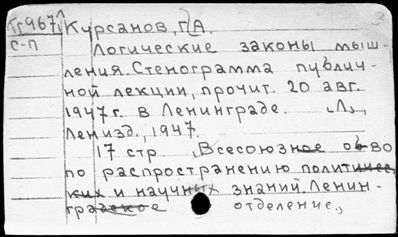 Гг967
С-П
Курсанов, Г.А.
Логические законы мыш-
ления. Стенограмма публич-
ной лекции, прочит. 20 авг.
1947 г. в Ленинграде. Л.,
Ленизд 1947.
17 стр. Всесоюзное о-во
по распространению политичес-
ких и научных знаний. Ленин-
градское отделение.